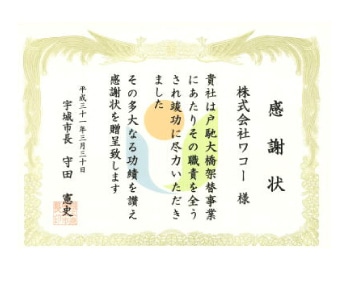 感謝状
株式会社ワコー 様
貴社は戸馳大橋架替事業
にあたりその職責を全う
され竣功に尽力いただき
ました
その多大なる功績を讃え
感謝状を贈呈致します
平成三十一年三月三十日
宇城市長 守田 憲史